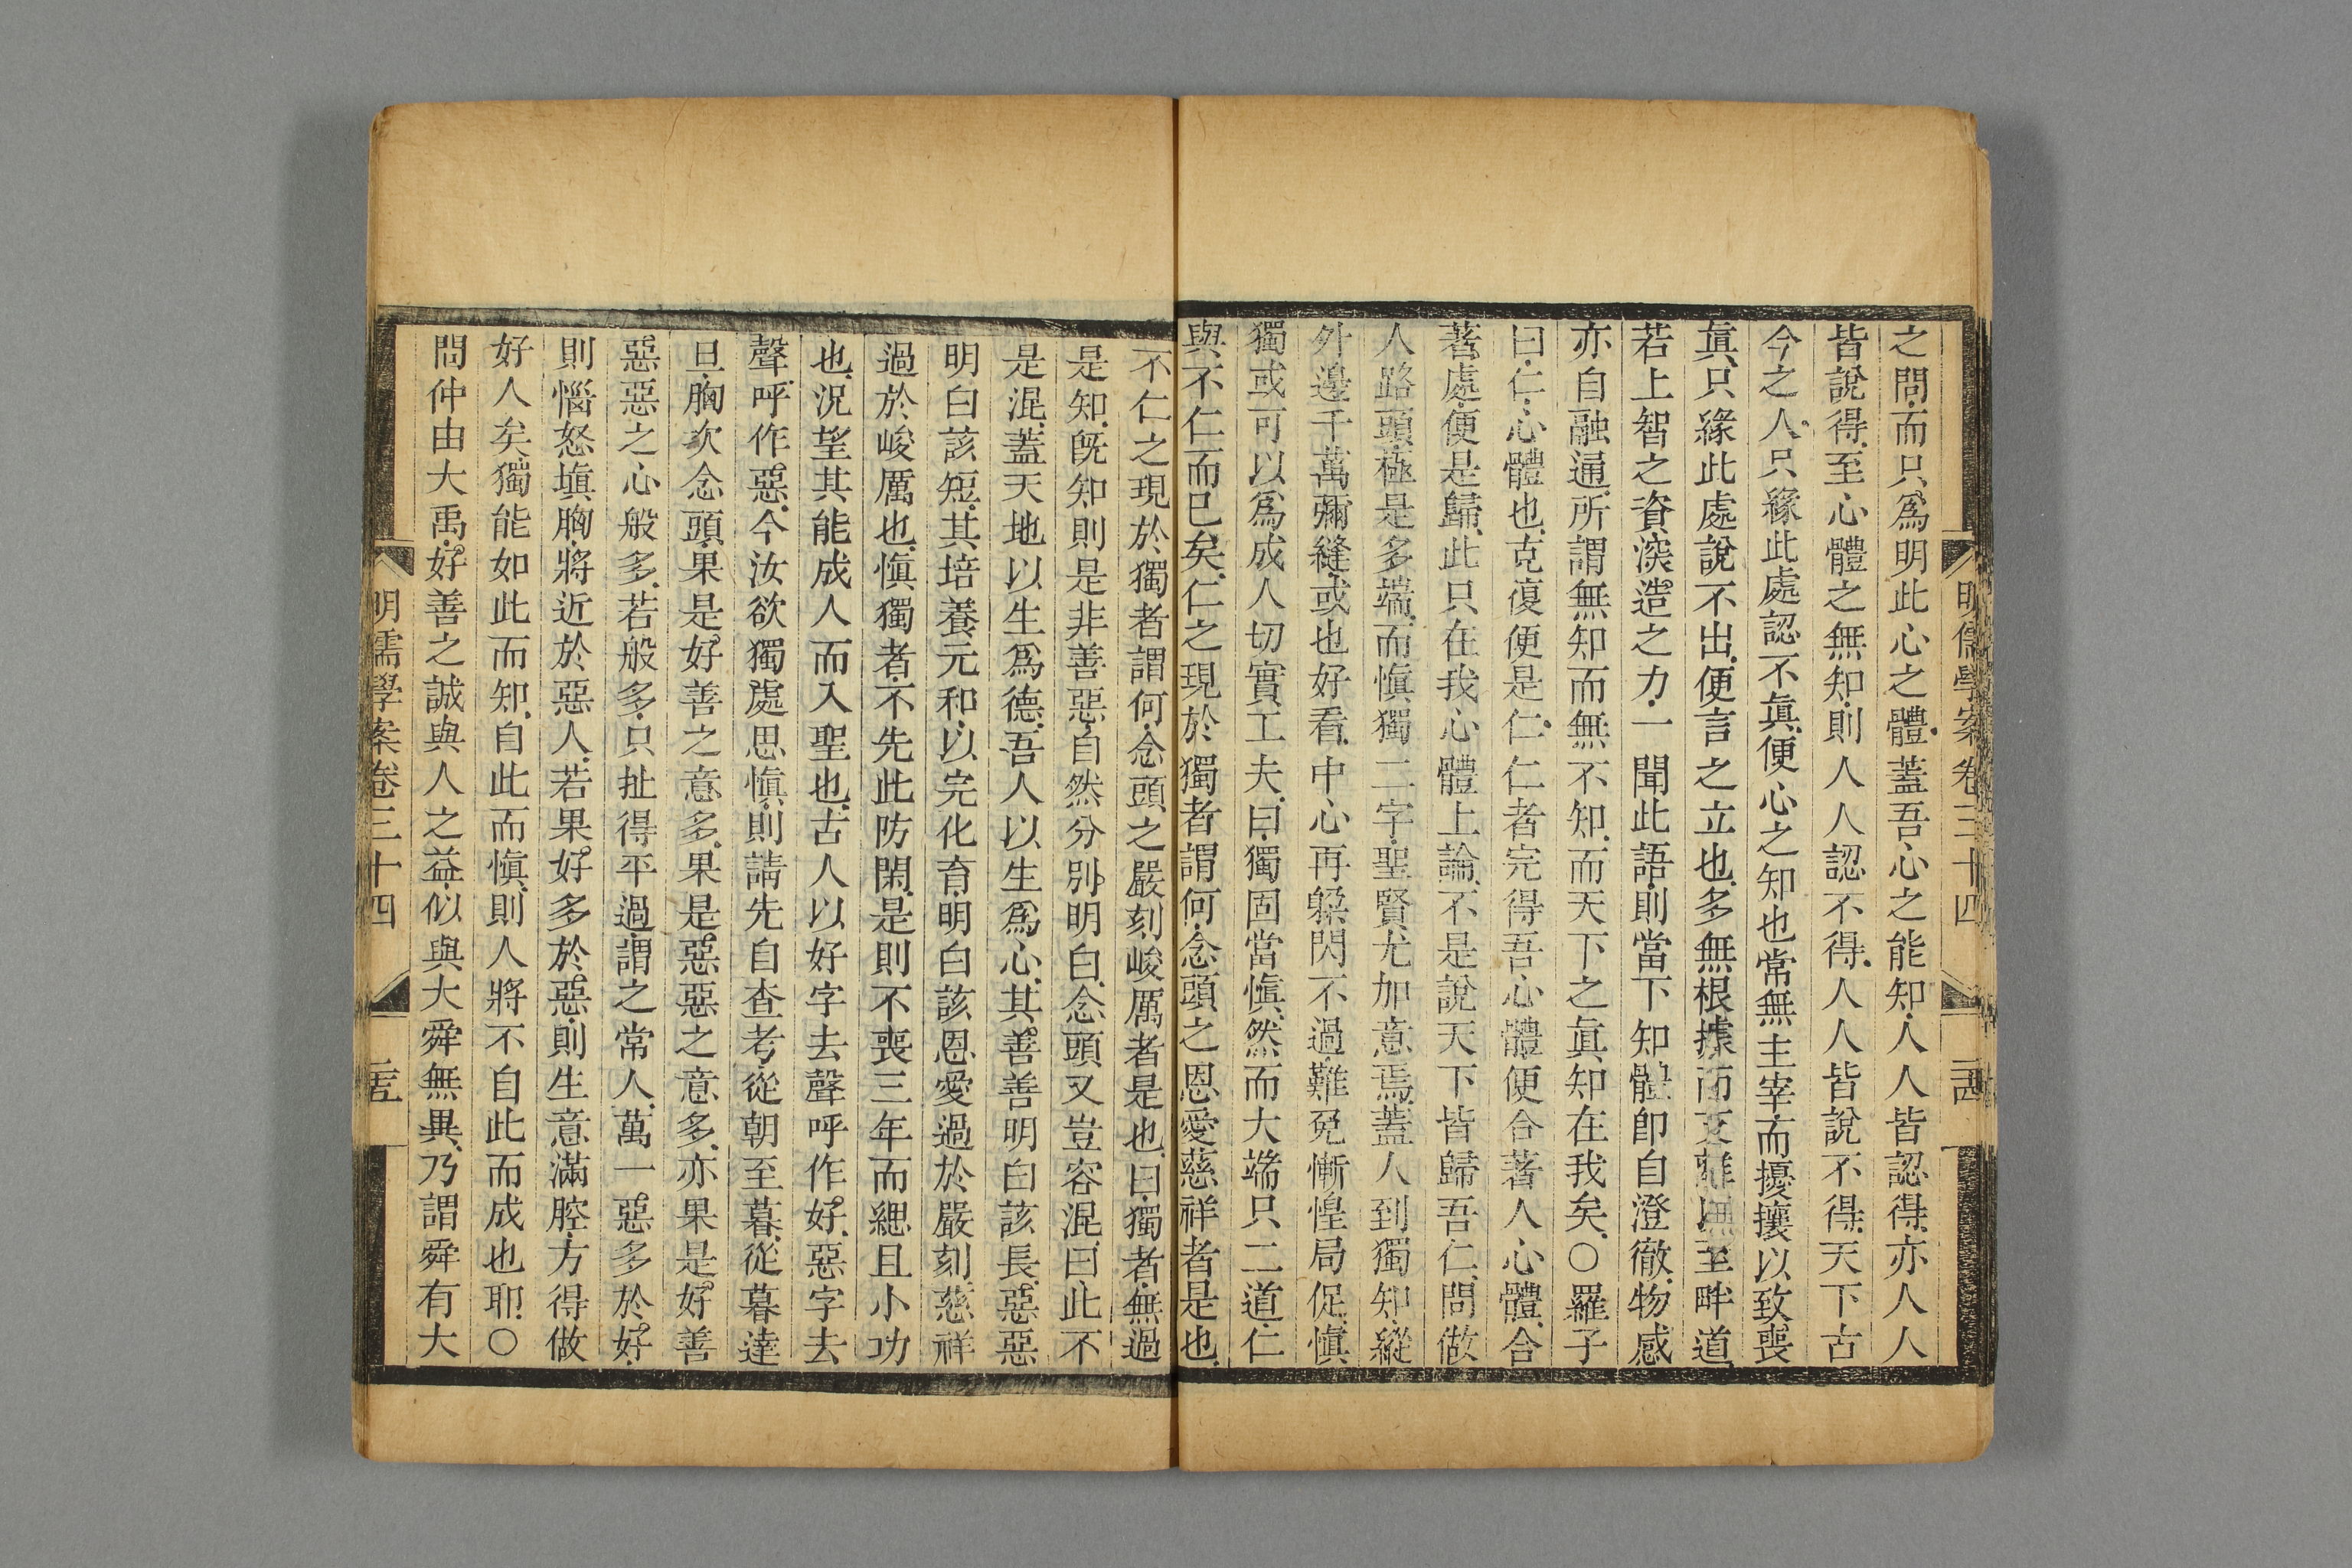 明儒學案卷三十四
之問而只爲明此心之體蓋吾心之能知人人皆認得亦人人
皆說得至心體之無知則人人認不得人人皆說不得天下古
今之人只緣此處認不眞便心之知也常無主宰而擾攘以致喪
眞只緣此處說不出便言之立也多無根據而支離以至畔道
若上智之資深造之力一聞此語則當下知體卽自澄徹物感
亦自融通所謂無知而無不知而天下之眞知在我矣○羅子
曰仁心體也克復便是仁仁者完得吾心體便合著人心體合
著處便是歸此只在我心體上論不是說天下皆歸吾仁問做
人路頭極是多端而愼獨二字聖賢尤加意焉蓋人到獨知縱
外邊千萬彌縫或也好看中心再躱閃不過難免慚惶局促愼
獨或可以爲成人切實工夫曰獨固當愼然而大端只二道仁
與不仁而已矣仁之現於獨者謂何念頭之恩愛慈祥者是也
不仁之現於獨者謂何念頭之嚴刻峻厲者是也曰獨者無過
是知旣知則是非善惡自然分別明白念頭又豈容混曰此不
是混蓋天地以生爲德吾人以生爲心其善善明白該長惡惡
明白該短其培養元和以完化育明白該恩愛過於嚴刻慈祥
過於峻厲也愼獨者不先此防閑是則不喪三年而緦且小功
也況望其能成人而入聖也古人以好字去聲呼作好惡字去
聲呼作惡今汝欲獨處思愼則請先自查考從朝至暮從暮達
旦胸次念頭果是好善之意多果是惡惡之意多亦果是好善
惡惡之心般多若般多只扯得平過謂之常人萬一惡多於好
則惱怒塡胸將近於惡人若果好多於惡則生意滿腔方得做
好人矣獨能如此而知自此而愼則人將不自此而成也耶○
問仲由大禹好善之誠與人之益似與大舜無異乃謂舜有大
明儒學案卷三十四